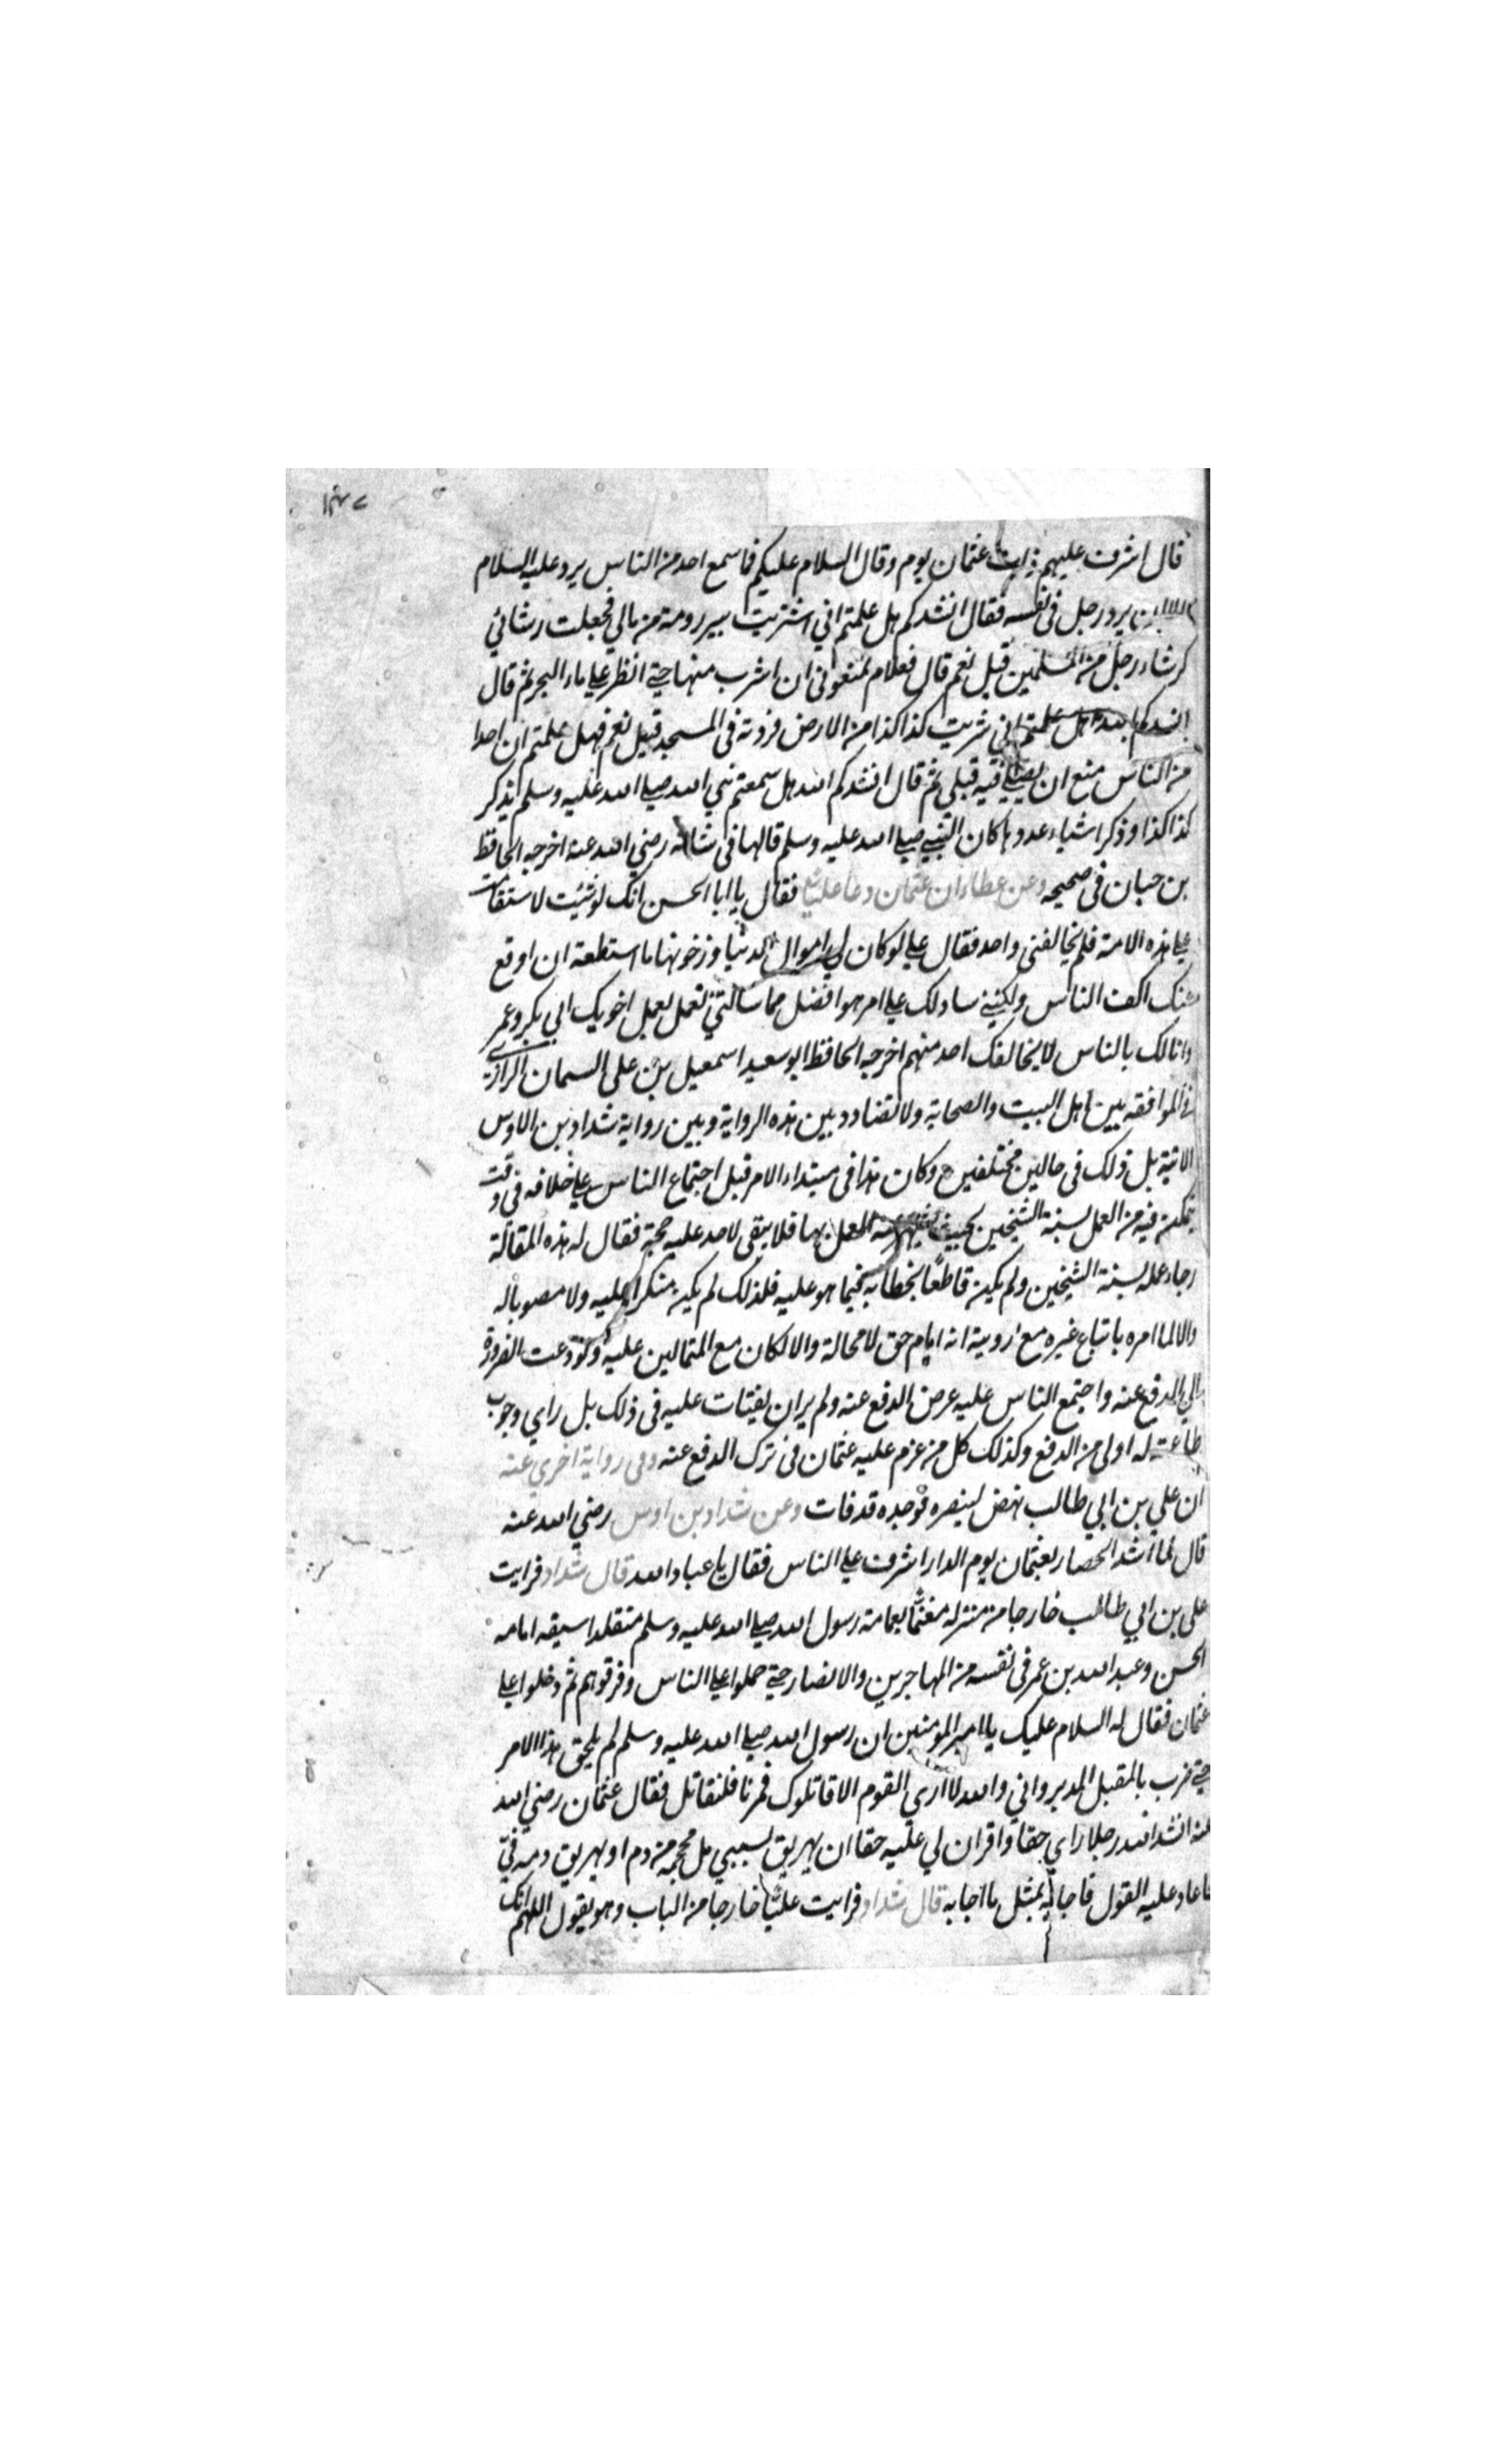 ١٣٧
قال اشرف عليهم ذات عثمان يوم وقال السلام عليكم فما سمع احد من الناس يرد عليه السلام
الا ان يرد رجل فى نفسه فقال انشدكم هل علمتم اني اشتريت بير رومة من مالي فجعلت رشائي
كرشاء رجل من المسلمين قيل نعم قال فعلام تمنعوني ان اشرب منها حتى انظر على ماء البحر ثم قال
انشدكم بالله هل علمتم اني شريت كذا كذا من الارض فزدته فى المسجد قيل نعم فهل علمتم ان احدا
من الناس منع ان يصلي فيه قبلي ثم قال انشدكم الله هل سمعتم نبي الله صلى الله عليه وسلم يذكر
كذا كذا وذكر اشياء عددها كان النبي صلى الله عليه وسلم قالها فى شانه رضي الله عنه اخرجه الحافظ
بن حبان فى صحيحه وعن عطاء ان عثمان دعا عليا فقال يا ابا الحسن انك لو شئت لاستقامت
على هذه الامة فلم يخالفنى واحد فقال علي لو كان لي اموال الدنيا وزخرفها ما استطعت ان اوقع
عنك اكف الناس ولكنني سادلك على امر هو افضل مما سالتني تعمل بعمل اخويك ابي بكر وعمر
وانا لك بالناس لا يخالفك احد منهم اخرجه الحافظ ابو سعيد اسمعيل بن على السمان الرازي
في الموافقه بين اهل البيت والصحابة ولا تضاد بين هذه الرواية وبين رواية شداد بن الاوس
الاتية بل ذلك فى حالين مختلفين وكان هذا فى مبتداء الامر قبل اجتماع الناس على خلافه فى وقت
يتمكن فيه من العمل بسنة الشيخين بحيث العمل بها فلا يبقى لاحد عليه حجة فقال له هذه المقالة
رجاء عمله بسنة الشيخين ولم يكن قاطعا بخطابه فيما هو عليه فلذلك لم يكن منكرا عليه ولا مصوبا له
والا لما امره باتباع غيره مع رويية انه امام حق لا محالة والا لكان مع المتمالين عليه ودعت الضرورة
الي الدفع عنه واجتمع الناس عليه عرض الدفع عنه ولم ير ان يفتات عليه فى ذلك بل راي وجوب
طاعته له اولى من الدفع وكذلك كل من عزم عليه عثمان فى ترك الدفع عنه وفى رواية اخرى عنه
ان علي بن ابي طالب نهض لينصره فوجده قد فات وعن شداد بن اوس رضي الله عنه
قال لما اشتد الحصار بعثمان يوم الدار اشرف على الناس فقال يا عباد الله قال شداد فرايت
على بن ابي طالب خارجا من منزله معتما بعمامة رسول الله صلى الله عليه وسلم متقلدا سيفه امامه
الحسن وعبد الله بن عمر فى نفسه من المهاجرين والانصار حتى حملوا على الناس وفرقوهم ثم دخلوا على
عثمان فقال له السلام عليك يا امير المومنين ان رسول الله صلى الله عليه وسلم لم يلحق هذا الامر
حتى ضرب بالمقبل المدبر واني والله لا ارى القوم الا قاتلوك فمرنا فلنقاتل فقال عثمان رضي الله
عنه انشد الله رجلا راي حقا واقر ان لي عليه حقا ان يهريق بسببي مل محجمة من دم او يهريق دمه في
فاعاد عليه القول فاجابه بمثل ما اجابه قال شداد فرايت عليا خارجا من الباب وهو يقول اللهم انك